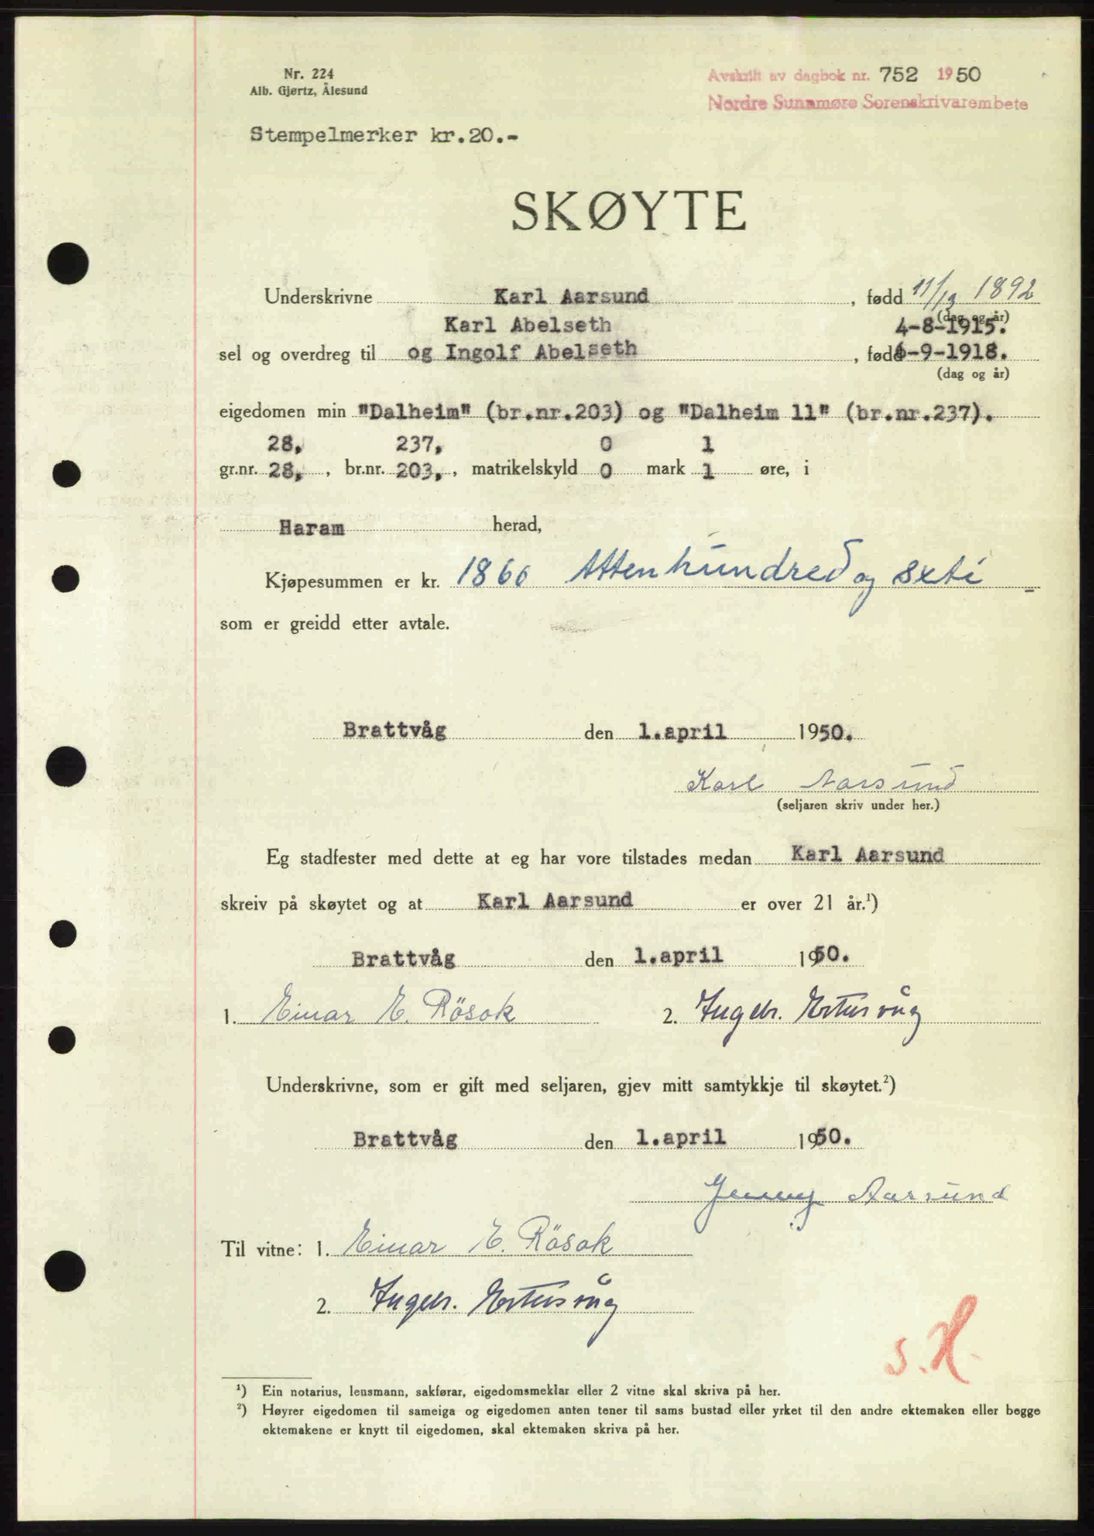 Nr. 224
Alb. Gjørtz, Ålesund
Avskrift av dagbok nr. 752 1950
Nordre Sunnmøre Sorenskrivarembete
Stempelmerker kr.20.-
SKØYTE
Underskrivne Karl Aarsund, fødd 11/12 1892
(dag og år)
Karl Abelseth 4-8-1915.
sel og overdreg til og Ingolf Abelseth, fødd 6-9-1918.
(dag og år)
eigedomen min "Dalheim" (br.nr.203) og "Dalheim 11" (br.nr.237).
28, 237, 0 1
gr.nr. 28, , br.nr. 203, , matrikelskyld 0 mark 1 øre, i
Haram herad,
Kjøpesummen er kr. 1860 Attenhundred og sxti
som er greidd etter avtale.
Brattvåg den 1.april 1950.
Karl Aarsund
(seljaren skriv under her.)
Eg stadfester med dette at eg har vore tilstades medan Karl Aarsund
skreiv på skøytet og at Karl Aarsund er over 21 år.¹)
Brattvåg den 1.april 1950.
1. Einar E. Røsok 2. Ingebr. Kortusvåg
Underskrivne, som er gift med seljaren, gjev mitt samtykkje til skøytet.²)
Brattvåg den 1.april 1950.
Jenny Aarsund
Til vitne: 1. Einar E. Røsok
2. Ingebr.
s.H.
¹) Ein notarius, lensmann, sakførar, eigedomsmeklar eller 2 vitne skal skriva på her.
²) Høyrer eigedomen til sameiga og eigedomen anten tener til sams bustad eller yrket til den andre ektemaken eller begge
ektemakene er knytt til eigedomen, skal ektemaken skriva på her.